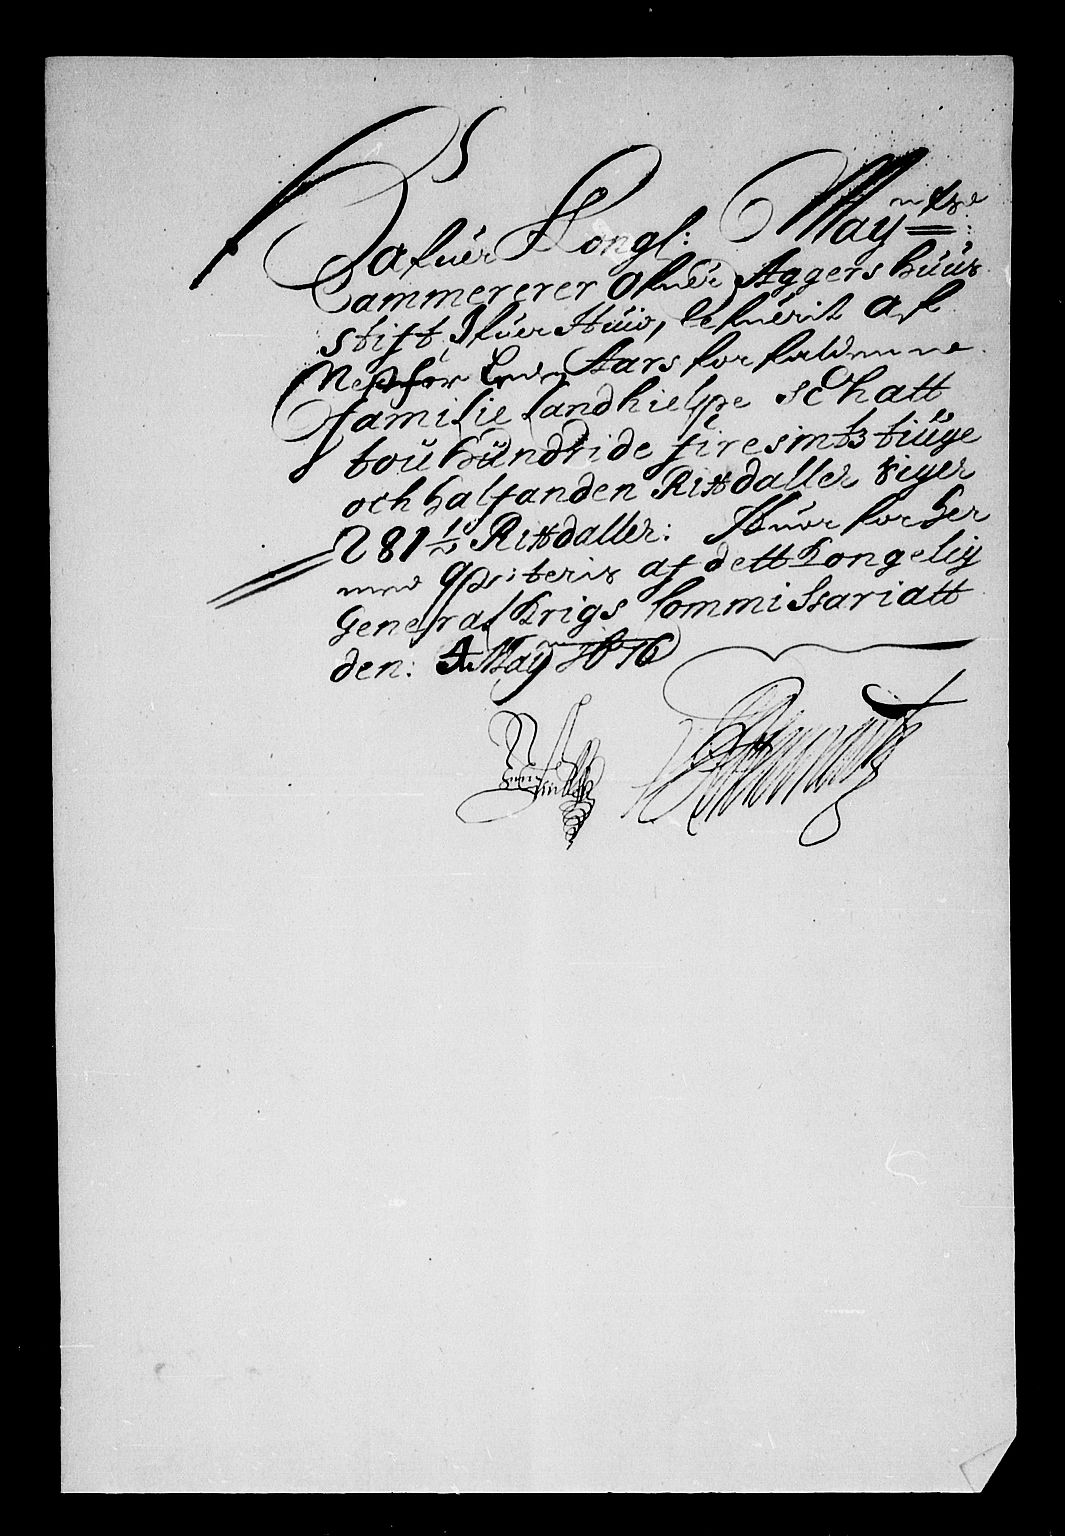 Hafuer Kongl: Maytz:
Cammererer ofuer Aggershuus
stift Ifuer Huid, lefuerit af
Nest för Aars forfaldenne
familie landhielpe schatt
tou hundride firesintztiuge
och halfanden Rittdaller siger
281½ Rittdaller: Huor for her
med qvisteris af dett Kongelig
General Krigs Commissariatt
den: 4 May 1676